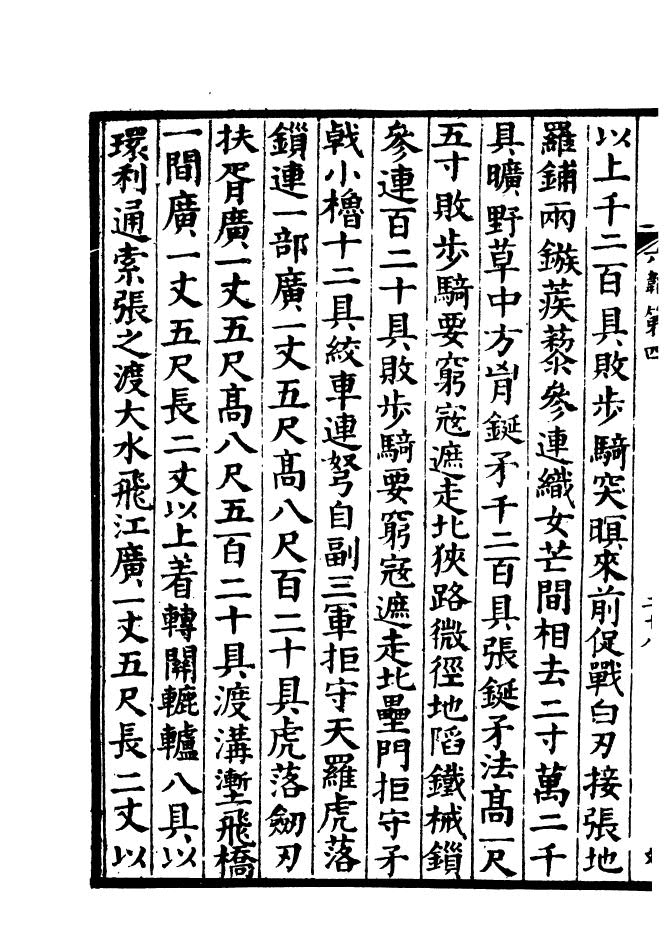 六韜第四
二十八
以上千二百具敗步騎突暝來前促戰白刃接張地
羅鋪兩鏃蒺藜參連織女芒間相去二寸萬二千
具曠野草中方胷鋋矛千二百具張鋋矛法高一尺
五寸敗步騎要窮寇遮走北狹路微徑地陷鐵械鎖
參連百二十具敗步騎要窮寇遮走北壘門拒守矛
戟小櫓十二具絞車連弩自副三軍拒守天羅虎落
鎖連一部廣一丈五尺高八尺百二十具虎落劒刃
扶胥廣一丈五尺高八尺五百二十具渡溝塹飛橋
一間廣一丈五尺長二丈以上着轉關轆轤八具以
環利通索張之渡大水飛江廣一丈五尺長二丈以